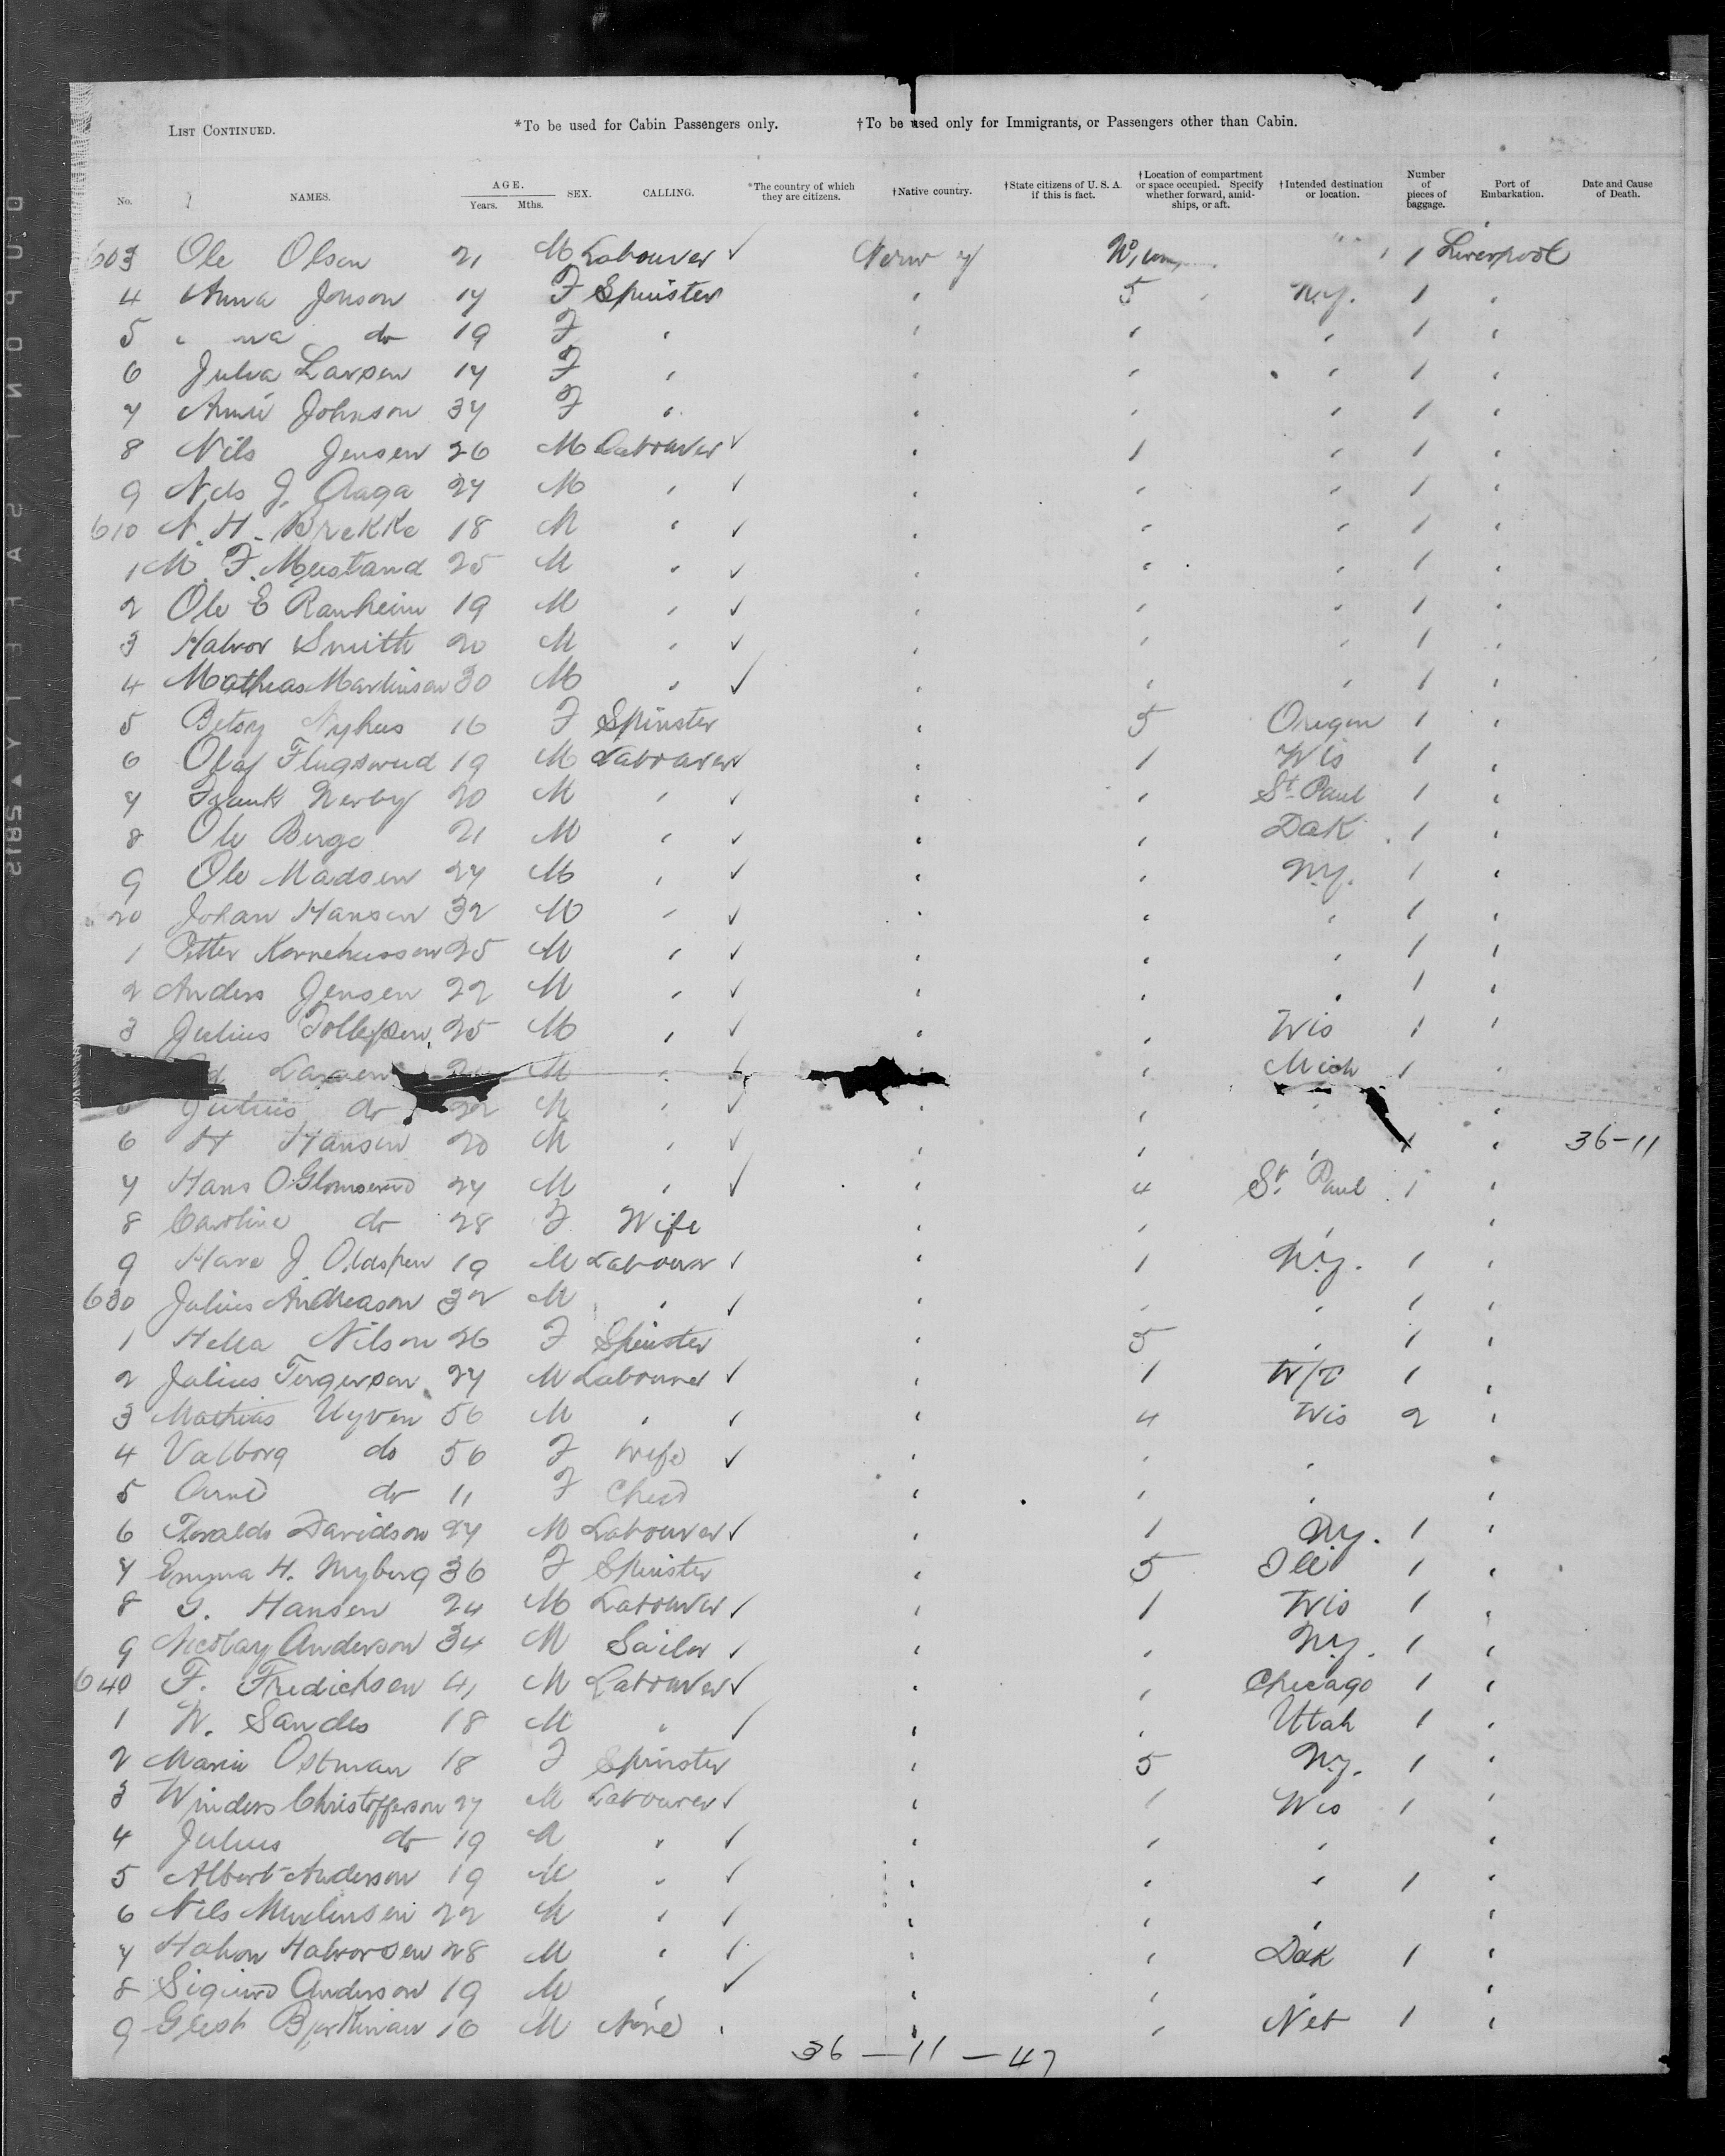 List Continued. *To be used for Cabin Passengers only. †To be used only for Immigrants, or Passengers other than Cabin.
No. NAMES. AGE. Years. Mths. SEX. CALLING. *The country of which they are citizens. †Native country. †State citizens of U. S. A. if this is fact. †Location of compartment or space occupied. Specify whether forward, amidships, or aft. †Intended destination or location. Number of pieces of baggage. Port of Embarkation. Date and Cause of Death.
603 Ole Olsen 21 M Labourer ✓ 1 Liverpool
4 Anna Jonson 17 F Spinster 5 N.Y. 1
5 do 19 F 1
6 Julia Larsen 17 F 1
7 Johnson 37 F 1
8 Nils Jensen 26 M Labourer ✓ 1 1
9 Nels J. Aaga 27 M ✓ 1
610 N. H. Brekke 18 M ✓ 1
1 M. F. 25 M ✓ 1
2 Ole E Ranheim 19 M ✓ 1
3 Halvor Smith 20 M ✓ 1
4 Mathias Martinson 30 M ✓ 1
5 Betsy Nyhus 16 F Spinster 5 Oregon 1
6 Olaf 19 M Labourer ✓ 1 Wis 1
7 Frank Nerby 20 M ✓ St Paul 1
8 Ole Berge 21 M ✓ Dak 1
9 Ole Madsen 27 M ✓ N.Y. 1
20 Johan Hansen 32 M ✓ 1
1 Petter 25 M ✓ 1
2 Anders Jensen 22 M ✓ 1
3 Julius Tollefsen 25 M ✓ Wis 1
Larsen M Mich 1
Julius do 22 M ✓
6 H Hansen 20 M ✓ 1 36-11
7 Hans O 27 M ✓ 4 St. Paul 1
8 Caroline do 28 F Wife
9 J 19 M Labourer ✓ 1 N.Y. 1
630 Julius Andreason 32 M ✓ 1
1 Nilson 26 F Spinster 5 1
2 Julius Torgerson 27 M Labourer ✓ 1 W/T 1
3 Mathias 56 M ✓ 4 Wis 2
4 Valborg do 56 F Wife ✓
5 do 11 F Child
6 Davidson 27 M Labourer ✓ 1 N.Y. 1
7 Emma H. Nyberg 36 F Spinster 5 Ill 1
8 G. Hansen 24 M Labourer ✓ 1 Wis 1
9 Nicolay Anderson 34 M Sailor ✓ N.Y. 1
640 F. Fredichsen 41 M Labourer ✓ Chicago 1
1 W. Sandes 18 M ✓ Utah 1
2 Maria Ostman 18 F Spinster 5 N.Y. 1
3 Christofferson 27 M Labourer ✓ 1 Wis 1
4 Julius do 19 M ✓
5 Albert Anderson 19 M ✓ 1
6 Nils 22 M ✓
7 Halvorsen 28 M ✓ Dak 1
8 Anderson 19 M ✓
9 16 M None Neb 1
36 — 11 — 47